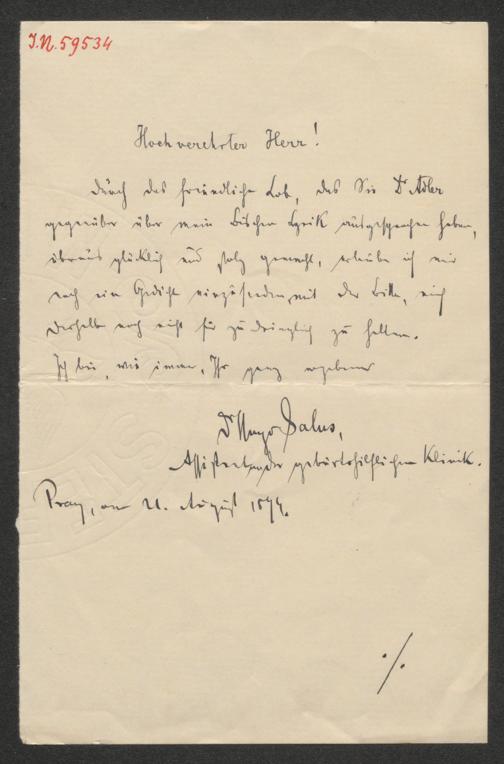 J.N. 59534
Hochverehrter Herr!
Durch das freundliche Lob, das Sie Dr Adler
gegenüber über mein Bischen Lyrik ausgesprochen haben,
überaus glücklich und stolz gemacht, erlaube ich mir
noch ein Gedicht einzusenden, mit der Bitte, mich
deshalb noch nicht für zu dringlich zu halten.
Ich bin, wie immer, Ihr ganz ergebener
Dr Hugo Salus,
Assistent an der geburtshilflichen Klinik.
Prag, am 21. August
./.